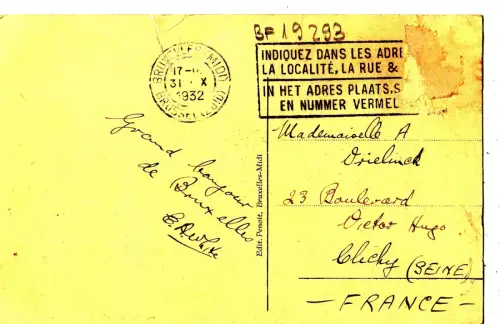 BF 19293
BRUXELLES-MIDI
17-
31 X
1932
BRUSSEL (ZUID)
INDIQUEZ DANS LES ADRE
LA LOCALITÉ, LA RUE &
IN HET ADRES PLAATS, S
EN NUMMER VERMEL
Grand bonjour
de Bruxelles
Edit. Penoit, Bruxelles-Midi
Mademoiselle A
Vrielinck
23 Boulevard
Victor Hugo
Clichy (SEINE)
- FRANCE -